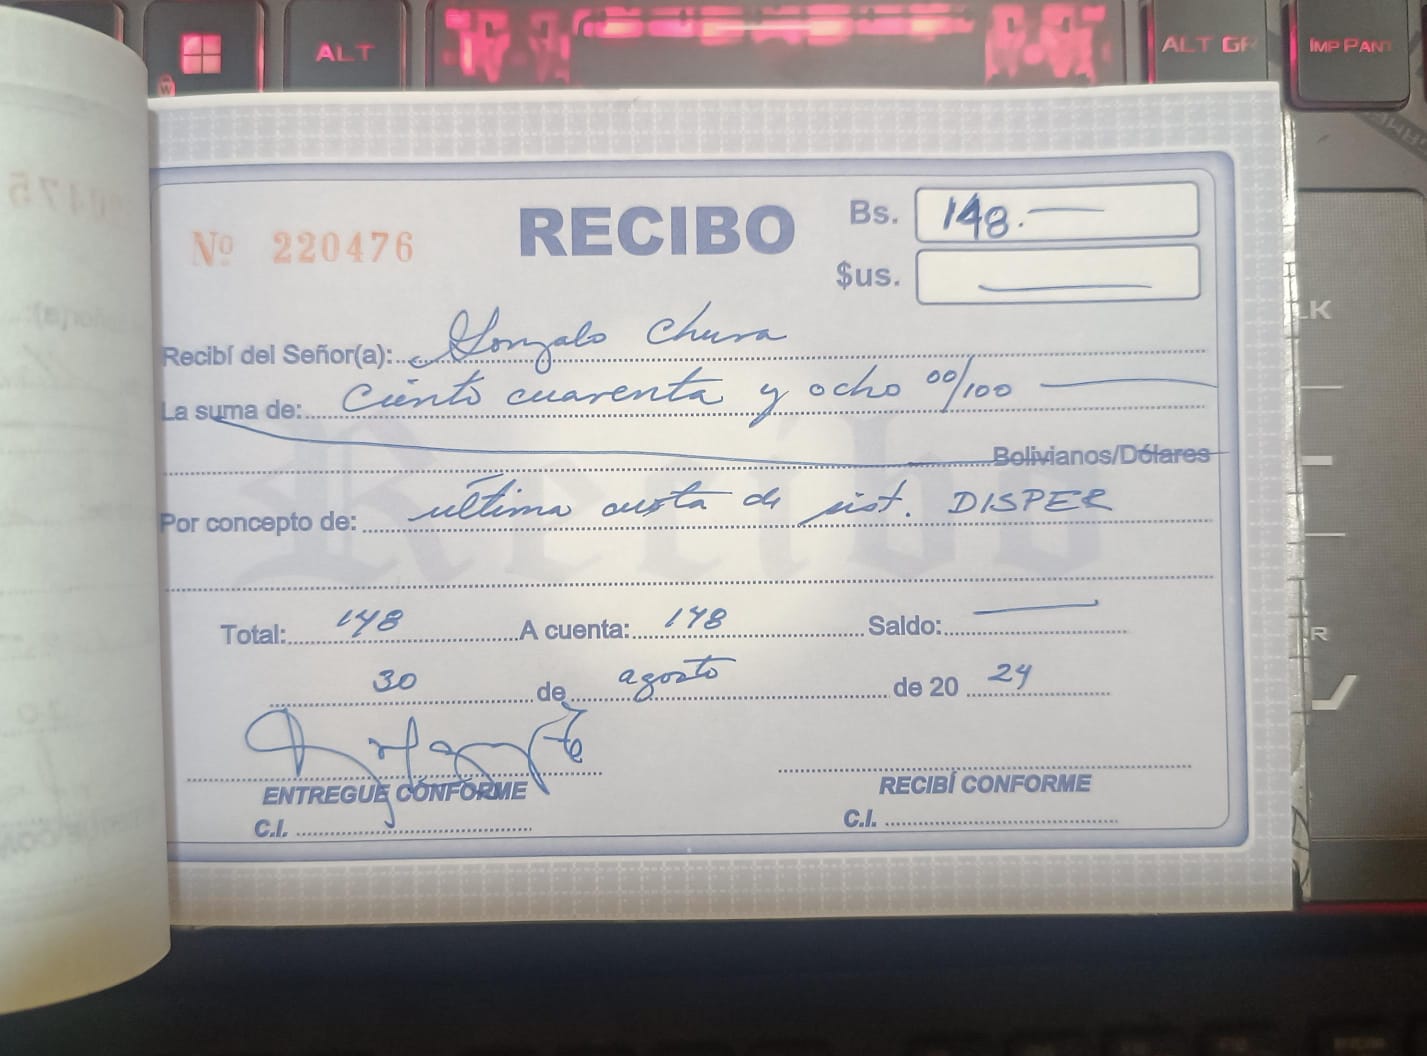 ALT
ALT GR
IMP PANT
RECIBO
Nº 220476
Bs. 148.-
$us. -
Recibí del Señor(a): Gonzalo Chura
La suma de: Ciento cuarenta y ocho 00/100
Bolivianos/Dólares
Por concepto de: última cuota de sist. DISPER
Total: 148 A cuenta: 148 Saldo: -
30 de agosto de 20 24
ENTREGUE CONFORME
RECIBÍ CONFORME
C.I.
C.I.